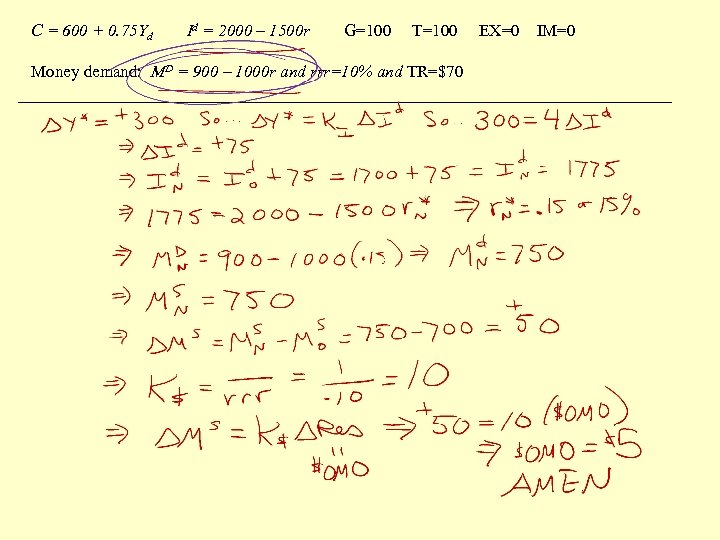 C = 600 + 0.75Yd Id = 2000 – 1500r G=100 T=100 EX=0 IM=0
Money demand: MD = 900 – 1000r and rrr=10% and TR=$70
ΔY* = +300 So... ΔY* = KI ΔId So.. 300 = 4ΔId
⇒ ΔId = +75
⇒ INd = I0d + 75 = 1700 + 75 = INd = 1775
⇒ 1775 = 2000 - 1500rN* ⇒ rN* = .15 or 15%
⇒ MND = 900 - 1000(.15) ⇒ MNd = 750
⇒ MNS = 750
⇒ ΔMS = MNS - M0S = 750 - 700 = +50
⇒ K$ = 1/rrr = 1/.10 = 10
⇒ ΔMS = K$ ΔRes ⇒ +50 = 10 ($OMO)
" $OMO ⇒ $OMO = $5
AMEN